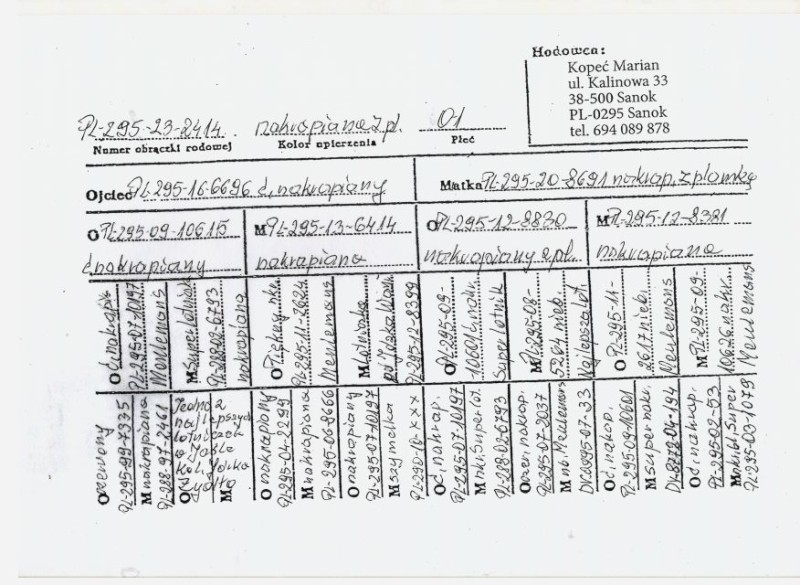 Hodowca:
Kopeć Marian
ul. Kalinowa 33
38-500 Sanok
PL-0295 Sanok
tel. 694 089 878
PL-295-23-2414 nakrapiana z pł. 01
Numer obrączki rodowej Kolor upierzenia Płeć
Ojciec PL-295-16-6696 c. nakrapiany
Matka PL-295-20-8691 nakrap. z plamką
O PL-295-09-10615
c nakrapiany
M PL-295-13-6414
nakrapiana
O PL-295-12-8830
nakrapiany z pł.
M PL-295-12-8381
nakrapiana
O c. nakrap.
PL-295-07-10197
Meulemans
M Super lotnik
PL-288-02-6793
nakrapiana
O
PL-295-11-2624
Meulemans
M Lotniczka
PL-295-12-8399
O PL-295-09-
10601 c. nakr.
Super lotnik
M PL-295-08-
5204 nieb.
Najlepsza lot.
O PL-295-11-
2617 nieb.
Meulemans
M PL-295-09-
10626 nakr.
Meulemans
O czerwony
PL-295-99-7325
M nakrapiana
PL-288-97-2461
O Jedna z
najlepszych
lotniczek
w Jaśle
kol. Jaśka
Zydło
M
O nakrapiany
PL-295-04-2299
M nakrapiana
PL-295-06-8666
O nakrapiany
PL-295-07-10197
M szymelka
O c. nakrap.
PL-295-07-10197
M nkr. Super lot.
PL-288-02-6793
O czer. nakrap.
PL-295-07-2037
M nb. Meulemans
DV2695-07-33
O c. nakrap.
PL-295-09-10601
M super nakr.
O c. nakrap.
M nkr. bł. Super
PL-295-03-1079